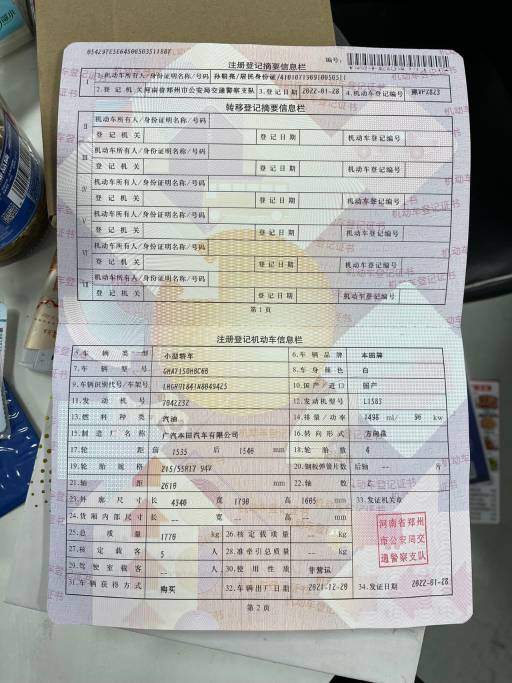 注册登记摘要信息栏
编号:
Ⅰ
1.机动车所有人/身份证明名称/号码
2.登记机关 河南省郑州市公安局交通警察支队 3.登记日期 2022-01-28 4.机动车登记编号
转移登记摘要信息栏
Ⅱ
机动车所有人/身份证明名称/号码
登记机关 登记日期 机动车登记编号
Ⅲ
机动车所有人/身份证明名称/号码
登记机关 登记日期 机动车登记编号
Ⅳ
机动车所有人/身份证明名称/号码
登记机关 登记日期 机动车登记编号
Ⅴ
机动车所有人/身份证明名称/号码
登记机关 登记日期 机动车登记编号
Ⅵ
机动车所有人/身份证明名称/号码
登记机关 登记日期 机动车登记编号
Ⅶ
机动车所有人/身份证明名称/号码
登记机关 登记日期 机动车登记编号
第1页
注册登记机动车信息栏
5.车辆类型 小型轿车 6.车辆品牌 本田牌
7.车辆型号 8.车身颜色 白
9.车辆识别代号/车架号 10.国产/进口 国产
11.发动机号 7042232 12.发动机型号 L15B3
13.燃料种类 汽油 14.排量/功率 1498 ml/ 96 kw
15.制造厂名称 广汽本田汽车有限公司 16.转向形式 方向盘
17.轮距 前 1535 后 1540 mm 18.轮胎数 4
19.轮胎规格 215/55R17 94V 20.钢板弹簧片数 后轴 -- 片
21.轴距 2610 mm 22.轴数 2
23.外廓尺寸 长 4340 宽 1790 高 1605 mm 33.发证机关章
24.货厢内部尺寸 长 -- 宽 -- 高 -- mm
25.总质量 1770 kg 26.核定载质量 -- kg
27.核定载客 5 人 28.准牵引总质量 -- kg
河南省郑州
市公安局交
通警察支队
29.驾驶室载客 -- 人 30.使用性质 非营运
31.车辆获得方式 购买 32.车辆出厂日期 2021-12-20 34.发证日期 2022-01-28
第2页